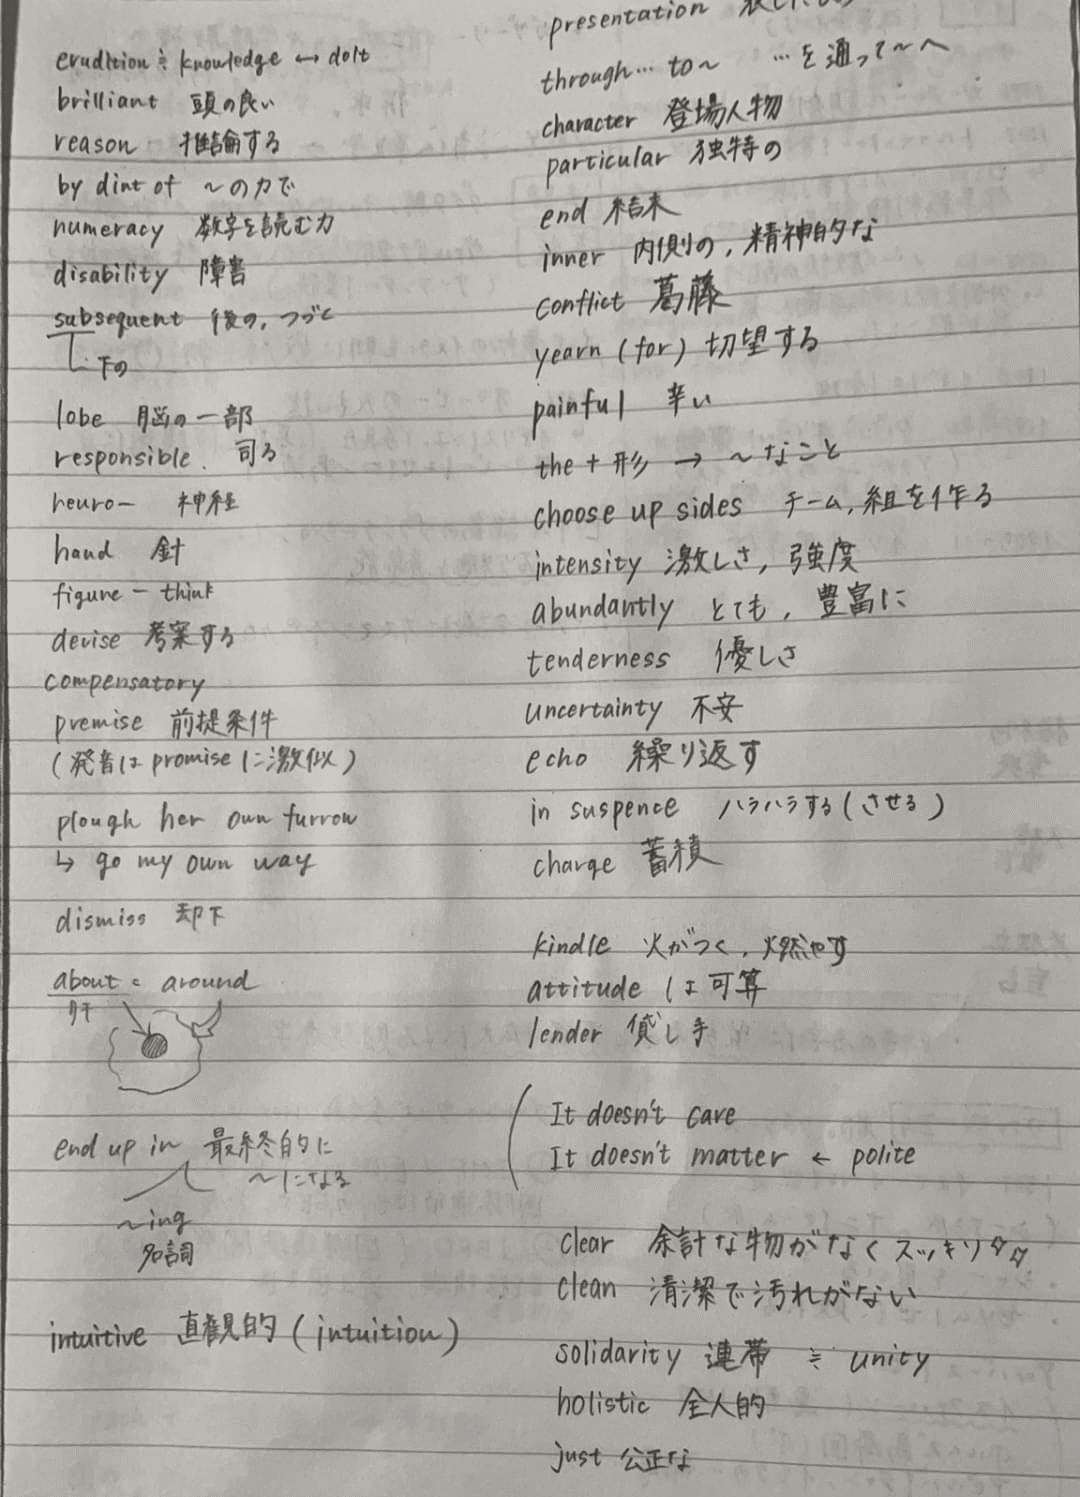 erudition ≒ knowledge ↔ dolt
brilliant 頭の良い
reason 推論する
by dint of 〜の力で
numeracy 数字を読む力
disability 障害
subsequent 後の, つづく
下の
lobe 脳の一部
responsible 司る
neuro- 神経
hand 針
figure - think
devise 考案する
compensatory
premise 前提条件
(発音はpromiseに激似)
plough her own furrow
↳ go my own way
dismiss 却下
about = around
外
end up in 最終的に
〜になる
〜ing
名詞
intuitive 直観的 (intuition)
presentation
through… to〜 …を通って〜へ
character 登場人物
particular 独特の
end 結末
inner 内側の, 精神的な
conflict 葛藤
yearn (for) 切望する
painful 辛い
the + 形 → 〜なこと
choose up sides チーム, 組を作る
intensity 激しさ, 強度
abundantly とても, 豊富に
tenderness 優しさ
uncertainty 不安
echo 繰り返す
in suspence ハラハラする(させる)
charge 蓄積
kindle 火がつく, 燃やす
attitude は可算
lender 貸し手
It doesn't care
It doesn't matter ← polite
clear 余計な物がなくスッキリ☆☆
clean 清潔で汚れがない
solidarity 連帯 ≒ unity
holistic 全人的
just 公正な